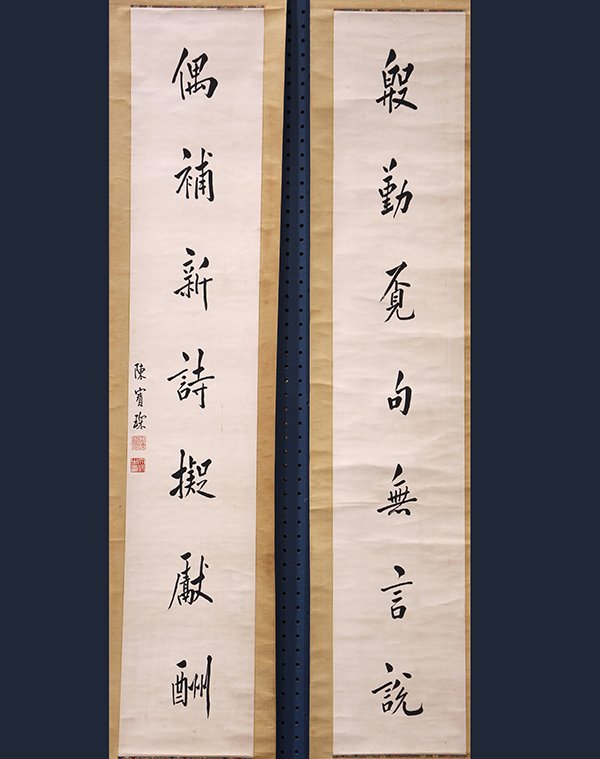 殷勤覔句無言說
偶補新詩擬獻酬
陳寶琛